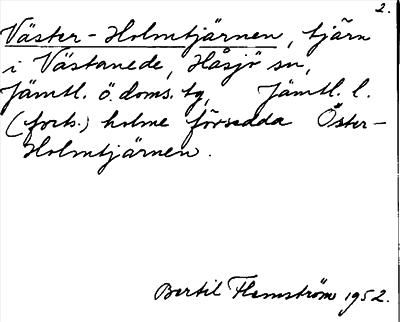 2.
Väster-Holmtjärnen, tjärn
i Västanede, Håsjö sn,
Jämtl. ö. doms. tg, Jämtl. l.
(forts.) holme försedda Öster-
Holmtjärnen.
Bertil Flemström 1952.